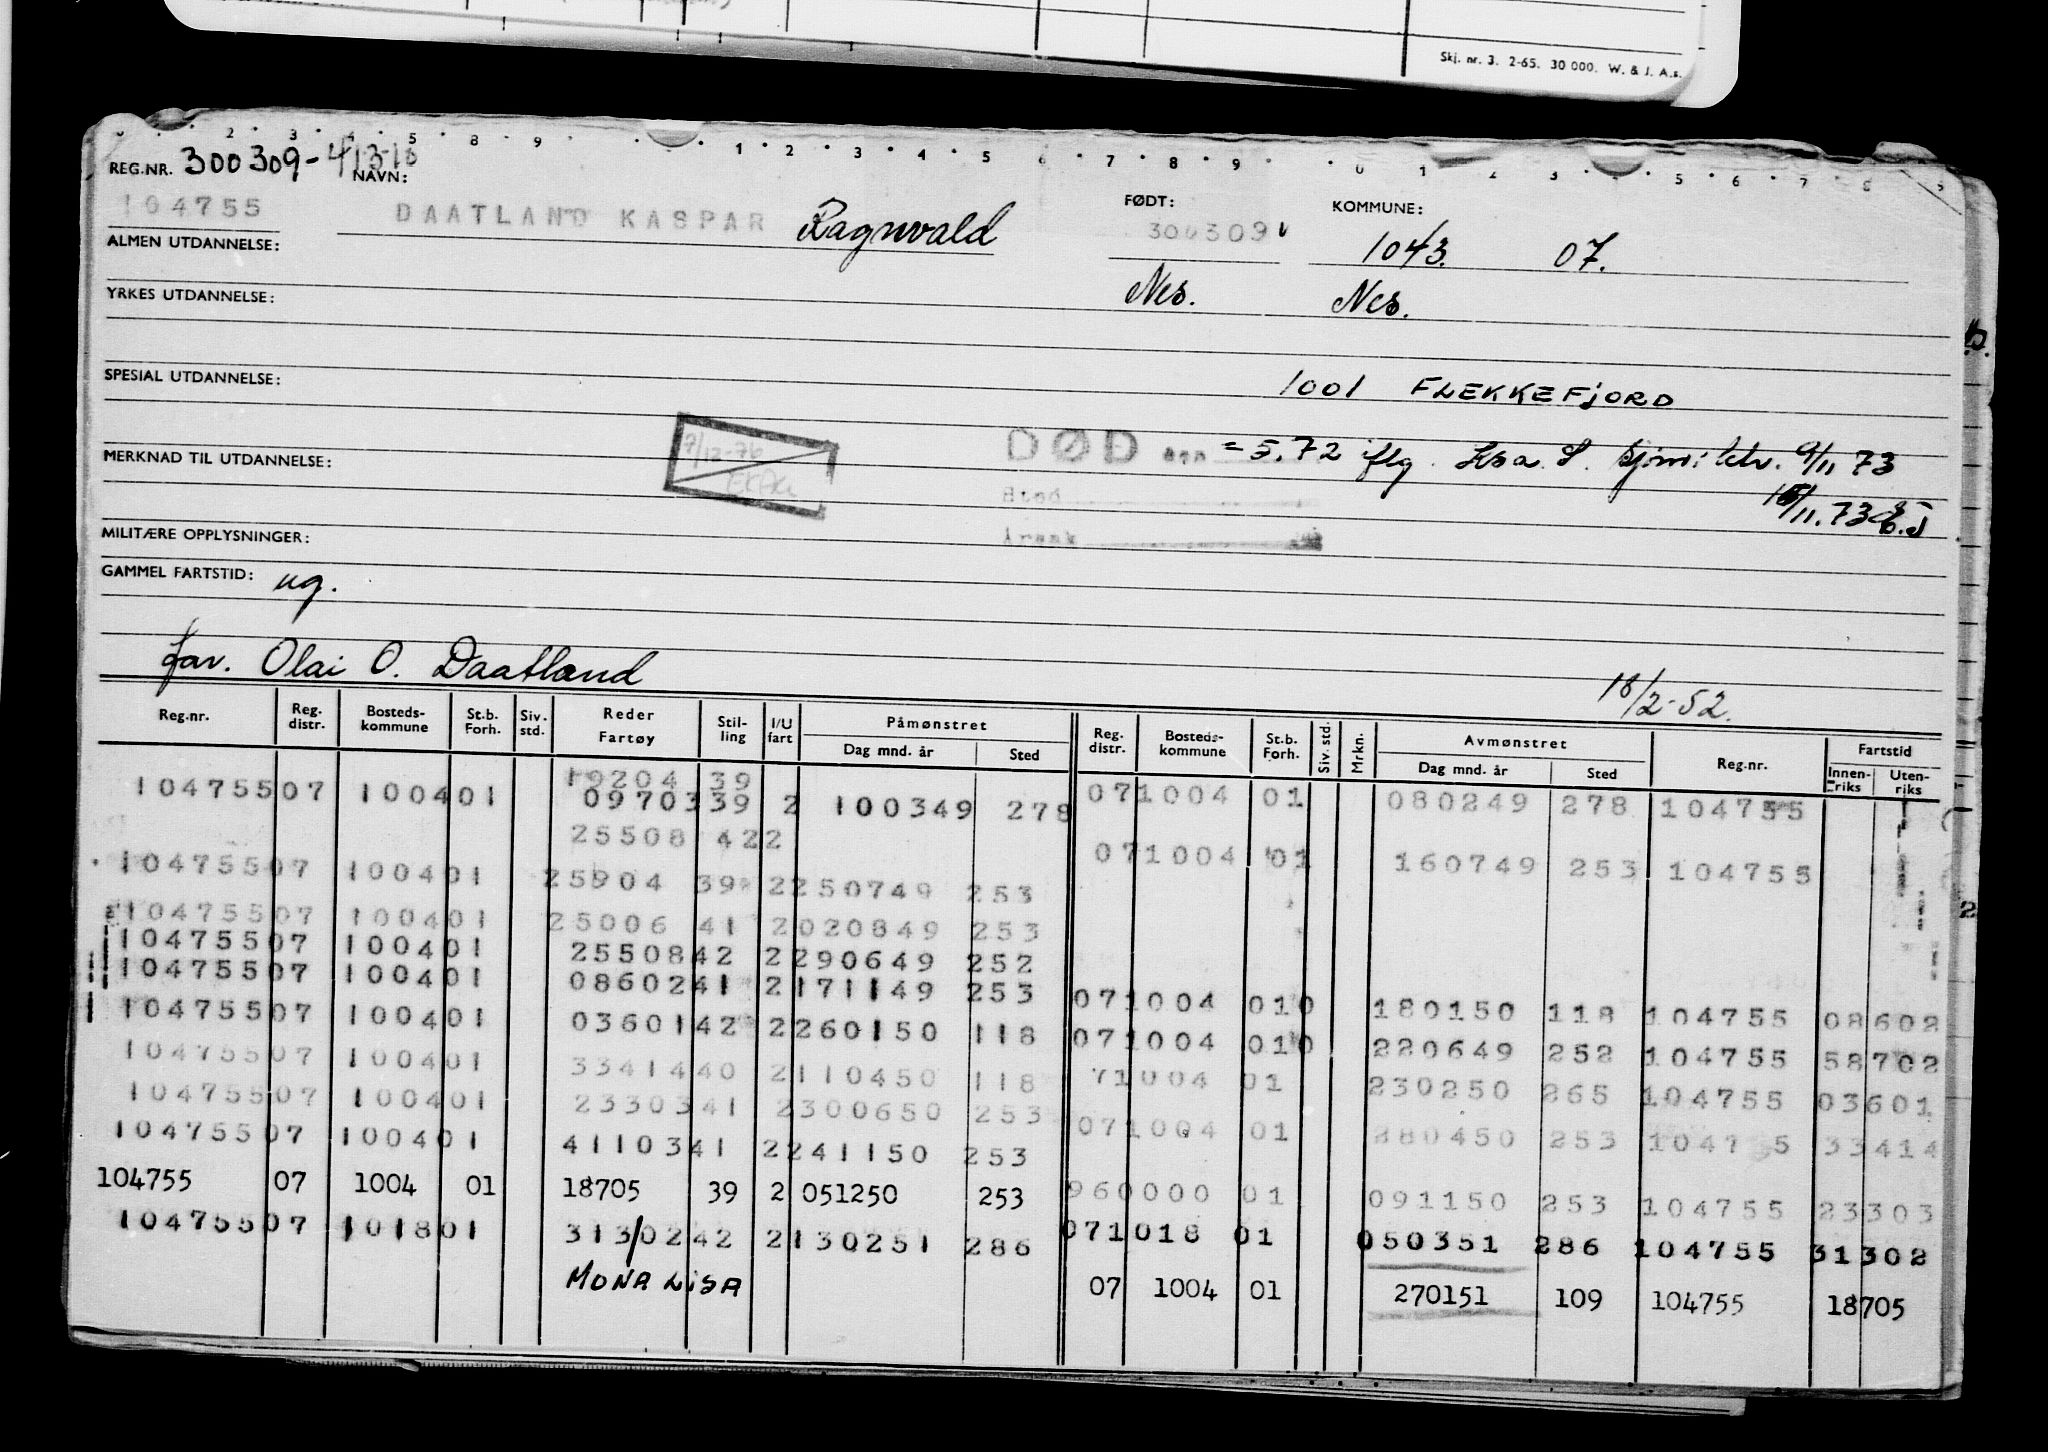 Skj. nr. 3. 2-65. 30 000. W. & J. A.s.
REG.NR. 300309-41310
NAVN:
104755 DAATLAND KASPAR Ragnvald
FØDT: 300309
KOMMUNE: 1043. 07.
ALMEN UTDANNELSE:
Nes. Nes.
YRKES UTDANNELSE:
SPESIAL UTDANNELSE:
1001 FLEKKEFJORD
7/12-76
DØD = 5.72 iflg. 9/11 73
MERKNAD TIL UTDANNELSE:
Sted
/11.73
Årsak
MILITÆRE OPPLYSNINGER:
GAMMEL FARTSTID: ug.
far. Olai O. Daatland
18/2-52.
Reg.nr. Reg. distr. Bosteds-kommune St.b. Forh. Siv. std. Reder Fartøy Stil-ling I/U fart Påmønstret Dag mnd. år Sted Reg. distr. Bosteds-kommune St.b. Forh. Siv. std. Mrkn. Avmønstret Dag mnd. år Sted Reg.nr. Fartstid Innen-riks Uten-riks
19204 39
104755 07 1004 01 09703 39 2 100349 278 07 1004 01 080249 278 104755
25508 42 2
07 1004 01 160749 253 104755
104755 07 1004 01 25904 39 2 250749 253
104755 07 1004 01 25006 41 2 020849 253
104755 07 1004 01 25508 42 2 290649 252
104755 07 1004 01 08602 41 2 171149 253 07 1004 01 0 180150 118 104755 08602
104755 07 1004 01 03601 42 2 260150 118 07 1004 01 0 220649 252 104755 58702
104755 07 1004 01 33414 40 2 110450 118 71004 01 230250 265 104755 03601
104755 07 1004 01 23303 41 2 300650 253 07 1004 01 280450 253 1047 5 33414
104755 07 1004 01 41103 41 2 241150 253
104755 07 1004 01 18705 39 2 051250 253 960000 01 091150 253 104755 23303
104755 07 1018 01 313/02 42 2 130251 286 07 1018 01 050351 286 104755 31302
MONA LISA 07 1004 01 270151 109 104755 18705